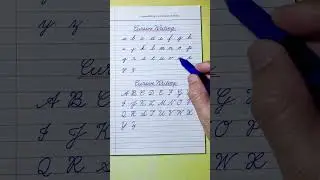 Cursive Writing
a b c d e f g h
i j k l m n o p
q r s t u v
y z
Cursive Writing
A B C D E F G
I J K L M N O P
Q R S T U V W X
Y Z